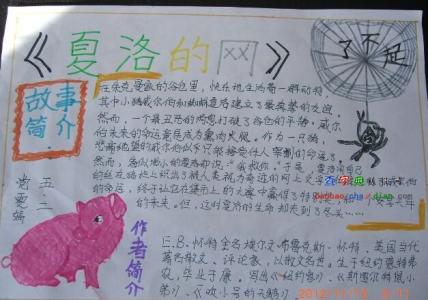 《夏洛的网》
了不起
故事
简介
在朱克曼家的谷仓里，快乐地生活着一群动物，
其中小猪威尔伯和蜘蛛夏洛建立了最真挚的友谊。
然而，一个最丑恶的消息打破了谷仓的平静：威尔
伯未来的命运竟是成为熏肉火腿。作为一只猪，
悲痛绝望的威尔伯似乎只能接受任人宰割的命运了，
然而，看似渺小的夏洛却说："我救你。"于是，夏洛用自己
的丝在猪栏上织出了被人类视为奇迹的网上文字
的命运，终于让它在集市上的大赛中赢得了特别奖
的未来。但，这时夏洛的生命却走到了尽头……
五二
作者简介
E.B.怀特全名埃尔文·布鲁克斯·怀特，美国当代
著名散文、评论家，以散文名世，生于纽约蒙特弗
农，毕业于康。写出《纽约客》、《斯图尔特鼠小
弟》、《吹小号的天鹅》